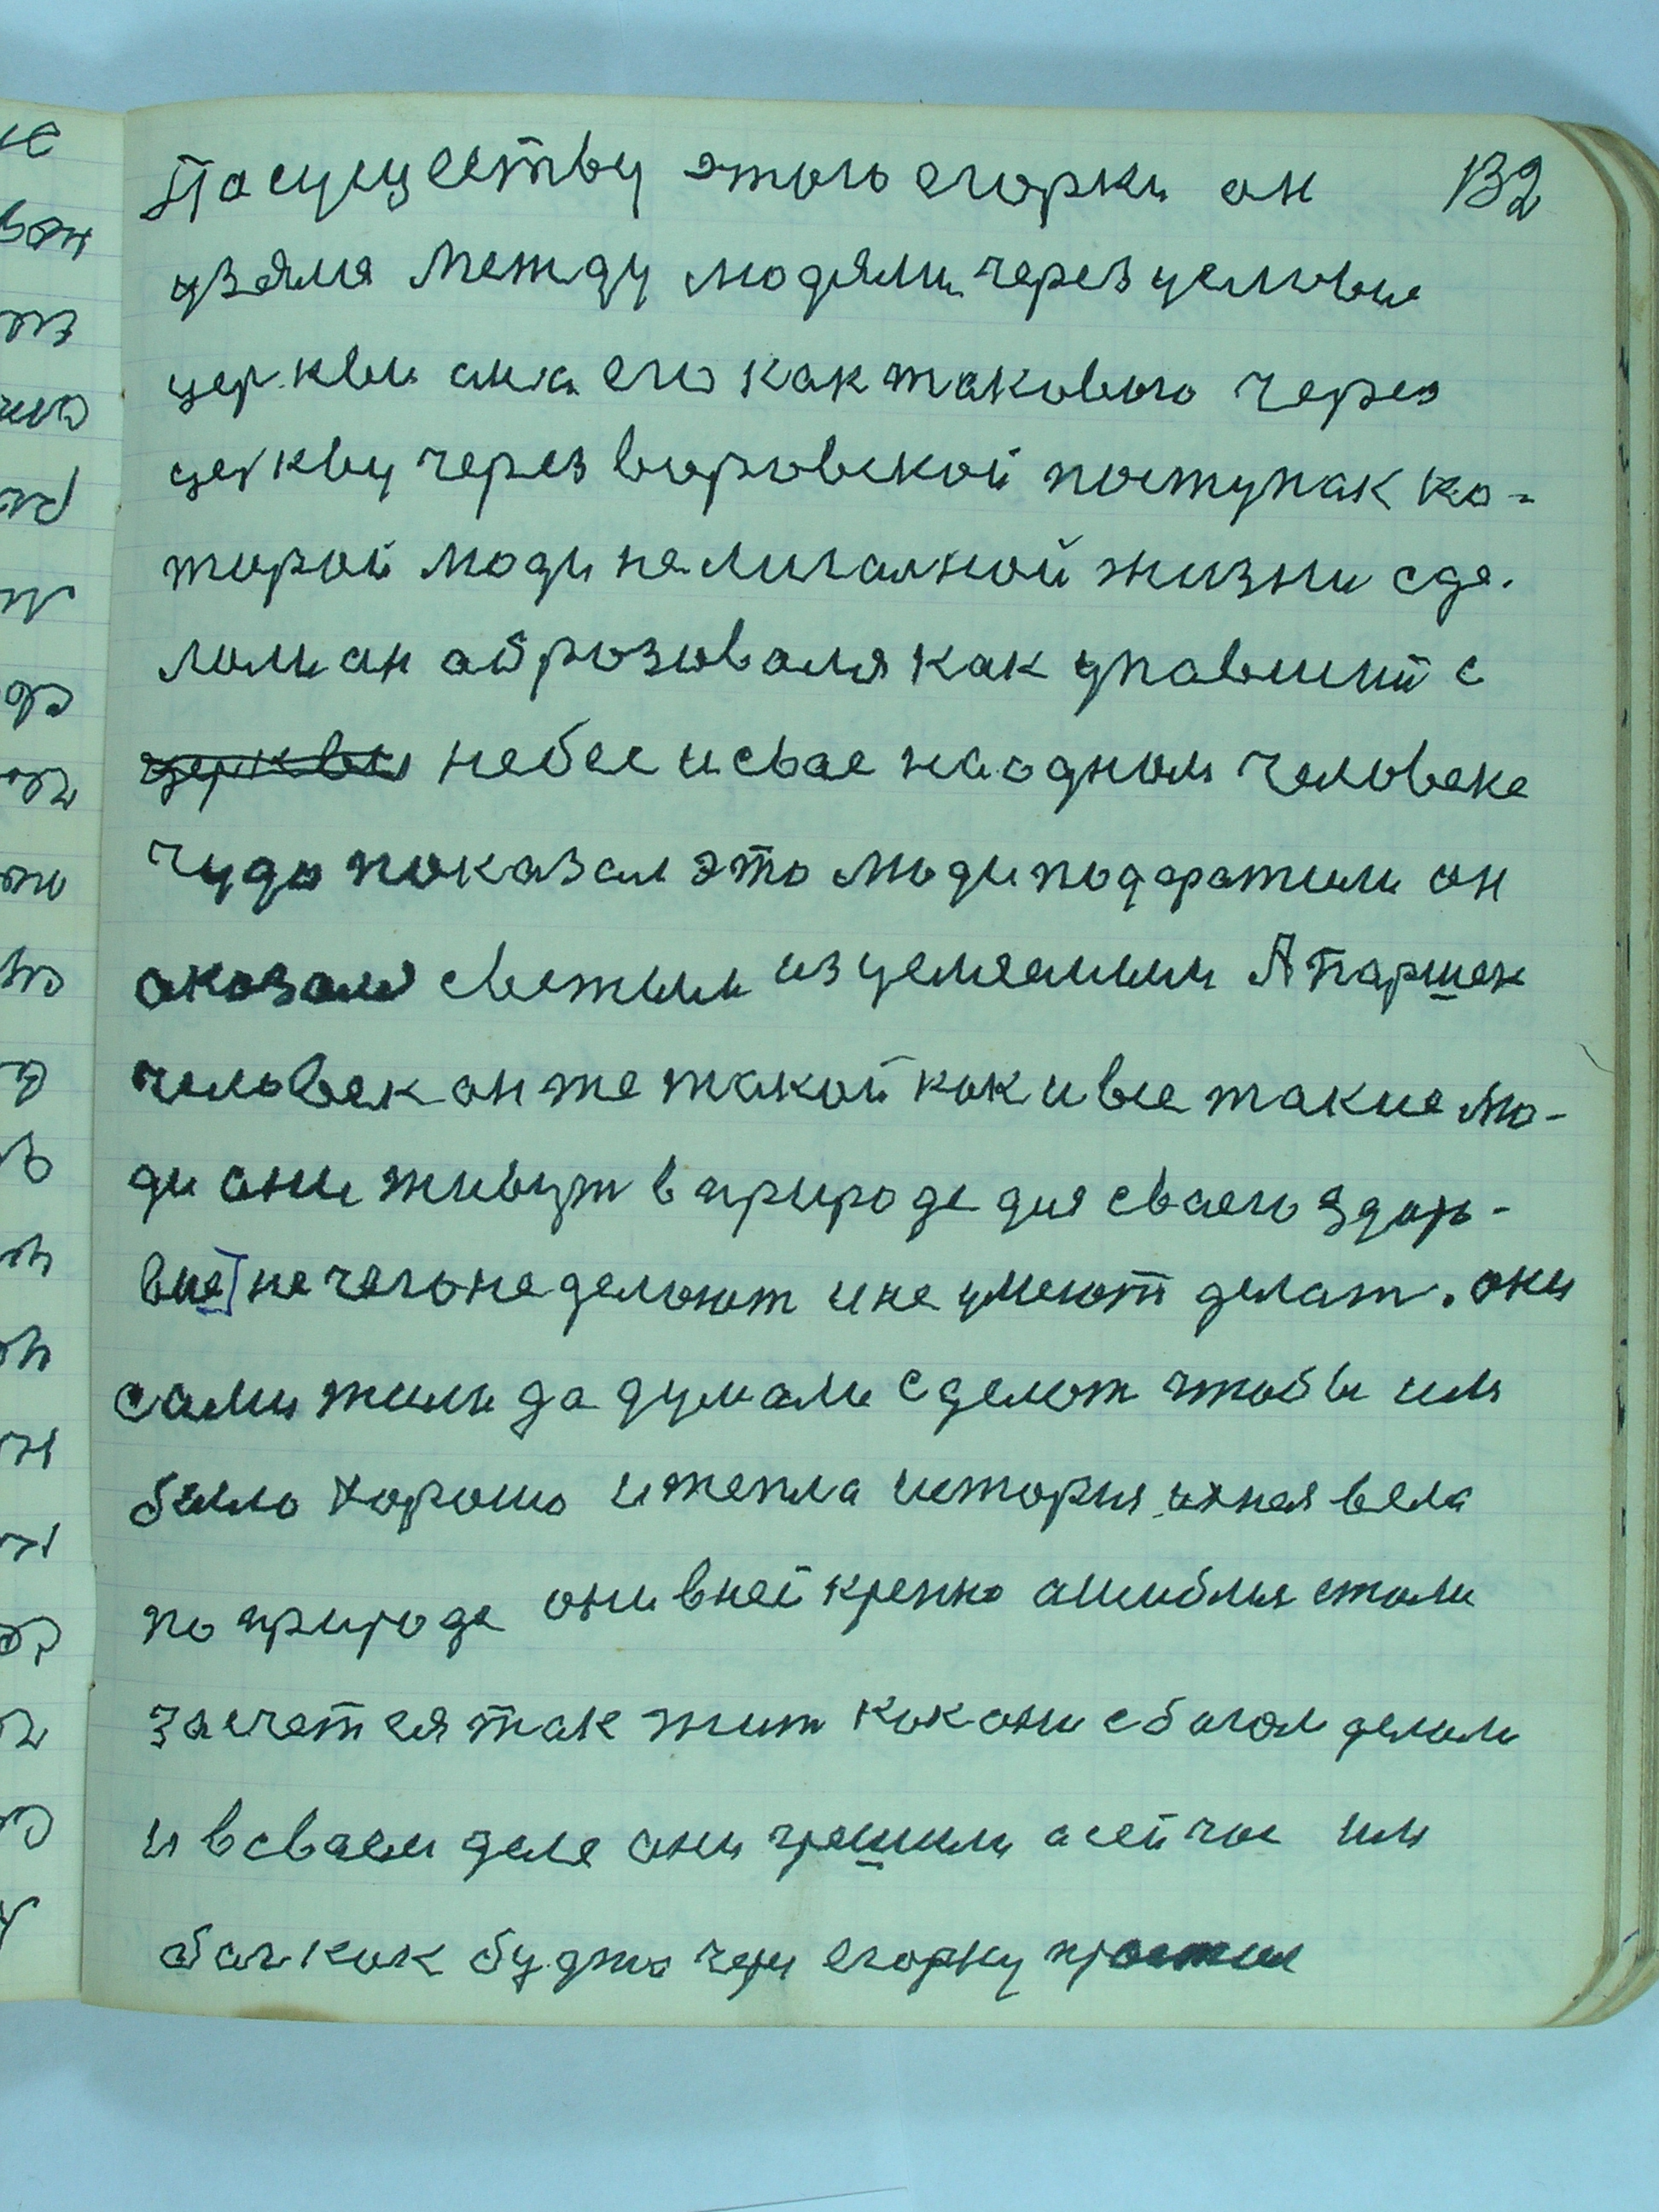 Посуществу этого егорки он 132
узялся между людями через условие
церкви она его как такового через
церкву через воровской поступак ко-
торой люди нелигалной жизни сде.
лали он аброзовался как упавший с
церкви небес и свае на одном человеке
чудо показал это люди подфатили он
оказался светым изцеляющим А Паршек
человек он же такой как и все такие лю-
ди они живут в природе для сваего здор-
вия] не чего не делоют и не умеют делат. они
сами жили да думали сделот чтобы им
было хорошо и тепла история ихняя вела
по природе они в ней крепко ашиблися стали
засчет ея так жит как они с богом делали
и в сваем деле они грешили а сейчас им
бог как будто через егорку простил